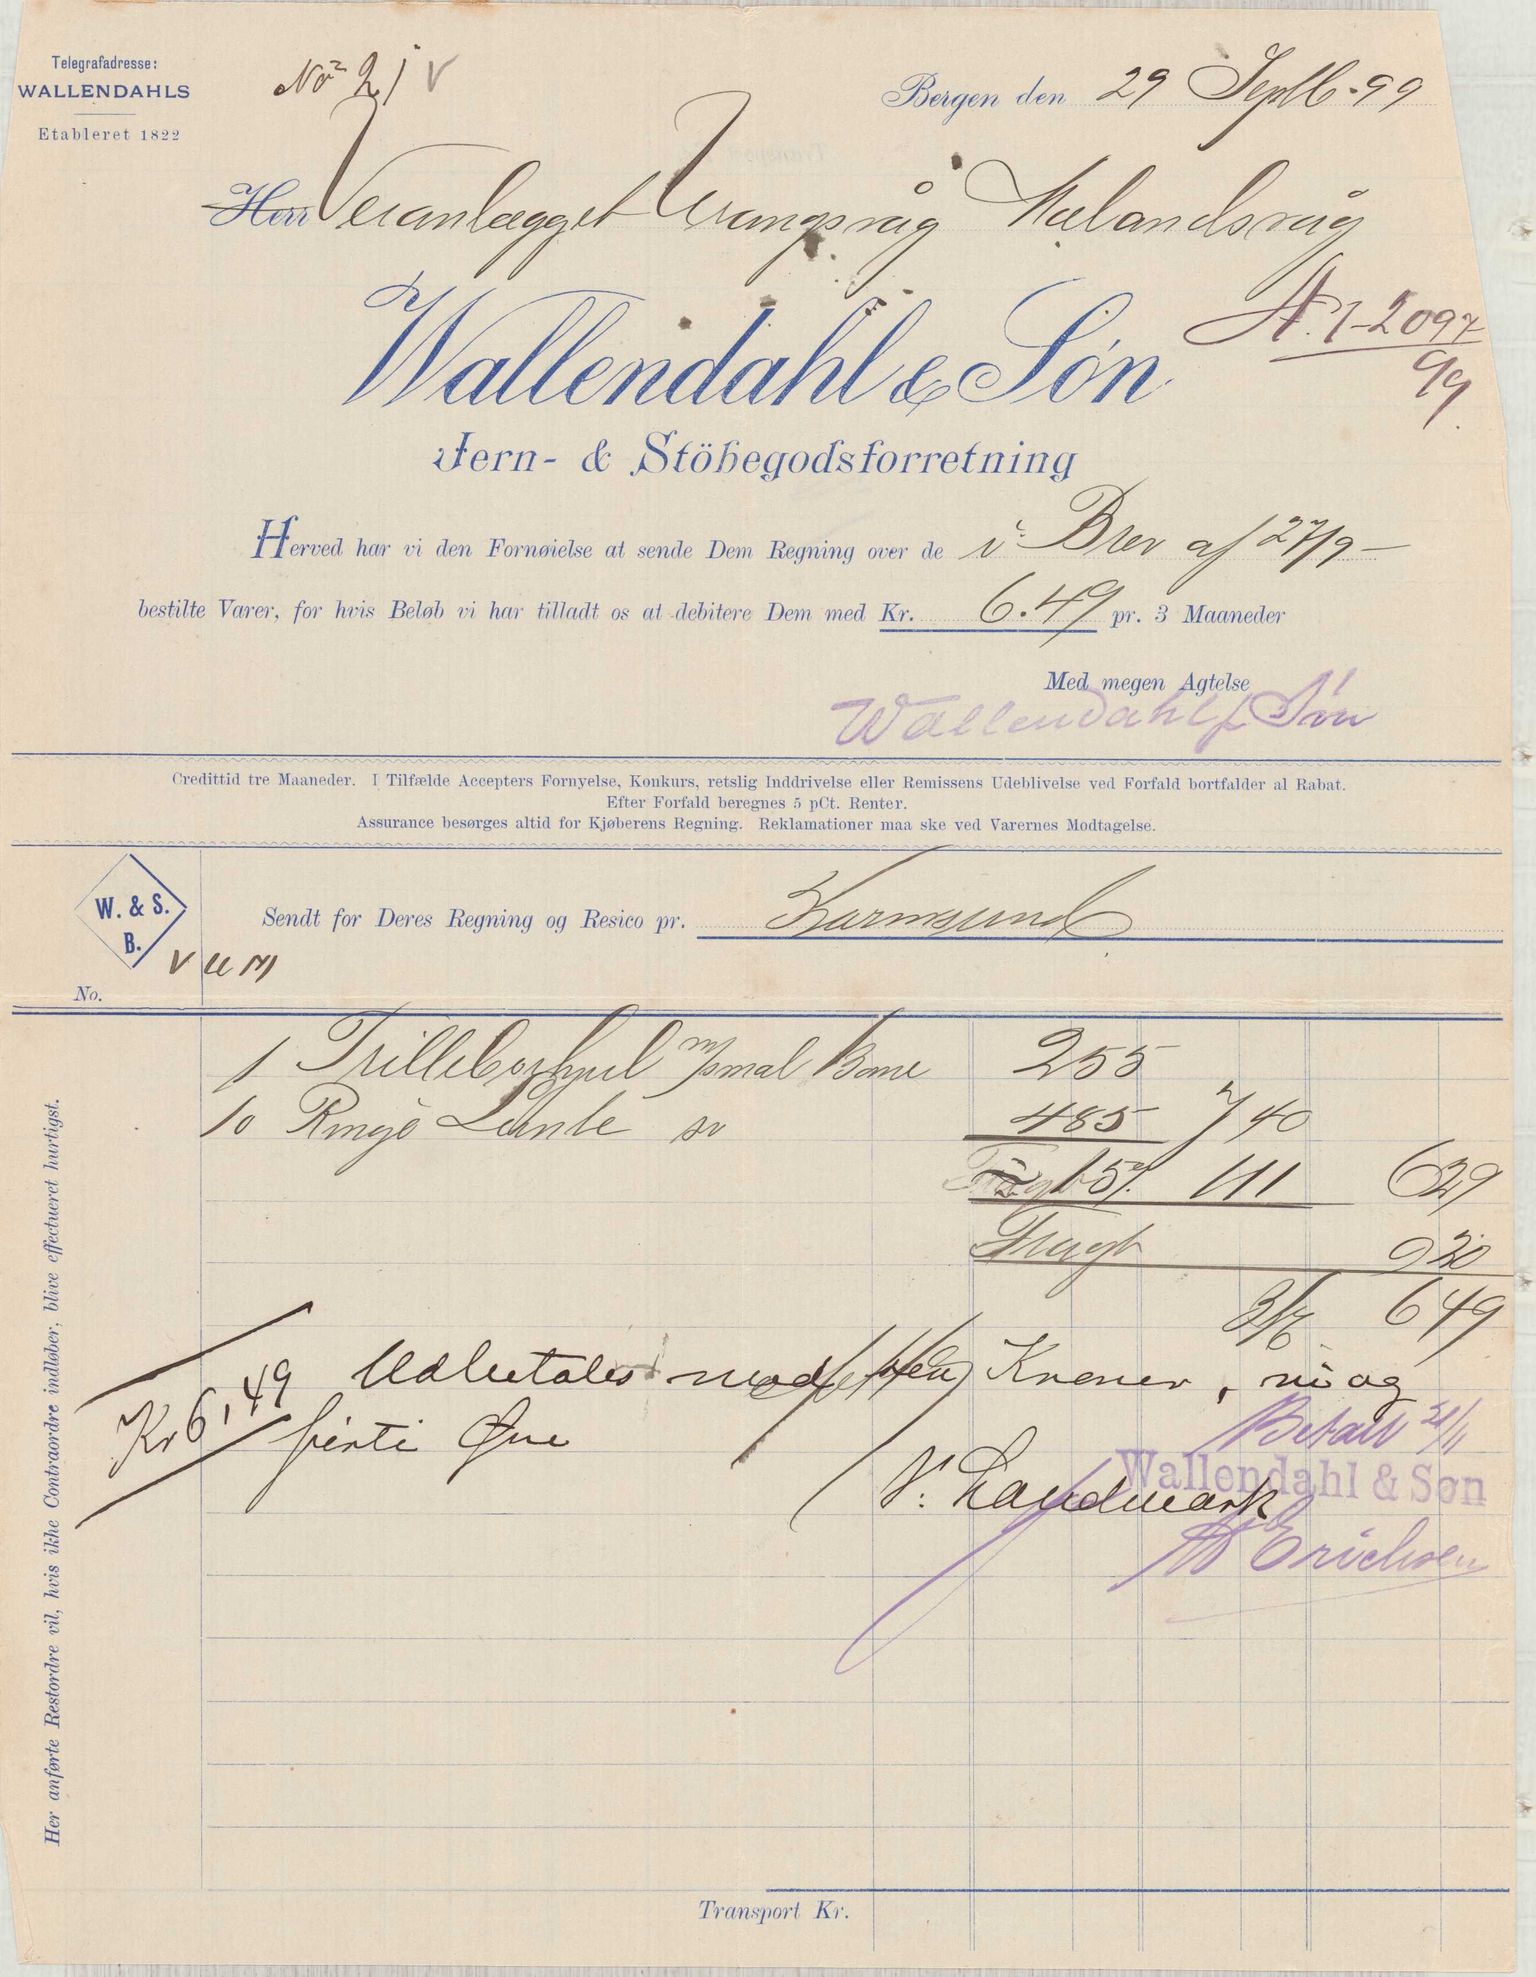 Telegrafadresse:
WALLENDAHLS
Etableret 1822
No 21 v
Bergen den 29 Septb. 99
Herr Veranlægget Vrangsvåg Mælandsvåg
A. 1-2097
99
Wallendahl & Søn
Jern- & Stöbegodsforretning
Herved har vi den Fornøielse at sende Dem Regning over de i Brev af 27/9 -
bestilte Varer, for hvis Beløb vi har tilladt os at debitere Dem med Kr. 6.49 pr. 3 Maaneder
Med megen Agtelse
Wallendahl & Søn
Credittid tre Maaneder. I Tilfælde Accepters Fornyelse, Konkurs, retslig Inddrivelse eller Remissens Udeblivelse ved Forfald bortfalder al Rabat.
Efter Forfald beregnes 5 pCt. Renter.
Assurance besørges altid for Kjøberens Regning. Reklamationer maa ske ved Varernes Modtagelse.
W. & S.
B.
Sendt for Deres Regning og Resico pr. Karmsund
No.
1 Trilleborhjul m/smal Bane 255
10 Ringe Lunte 485 7 40
15% 111 6 29
Fragt 20
6 49
Kr 6,49
Udbetales med Kroner, ni og
firti Øre
Betalt 21/11
Wallendahl & Søn
V. Landmark
Erichsen
Her anførte Restordre vil, hvis ikke Contraordre indløber, blive effectueret hurtigst.
Transport Kr.